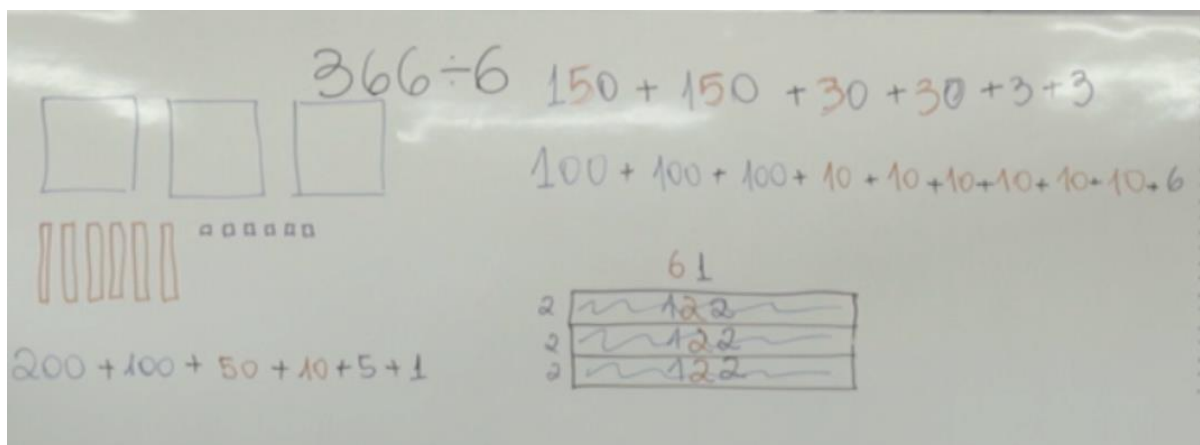 366÷6
150 + 150 + 30 + 30 + 3 + 3
100 + 100 + 100 + 10 + 10 + 10 + 10 + 10 + 10 + 6
200 + 100 + 50 + 10 + 5 + 1
61
2 122
2 122
2 122